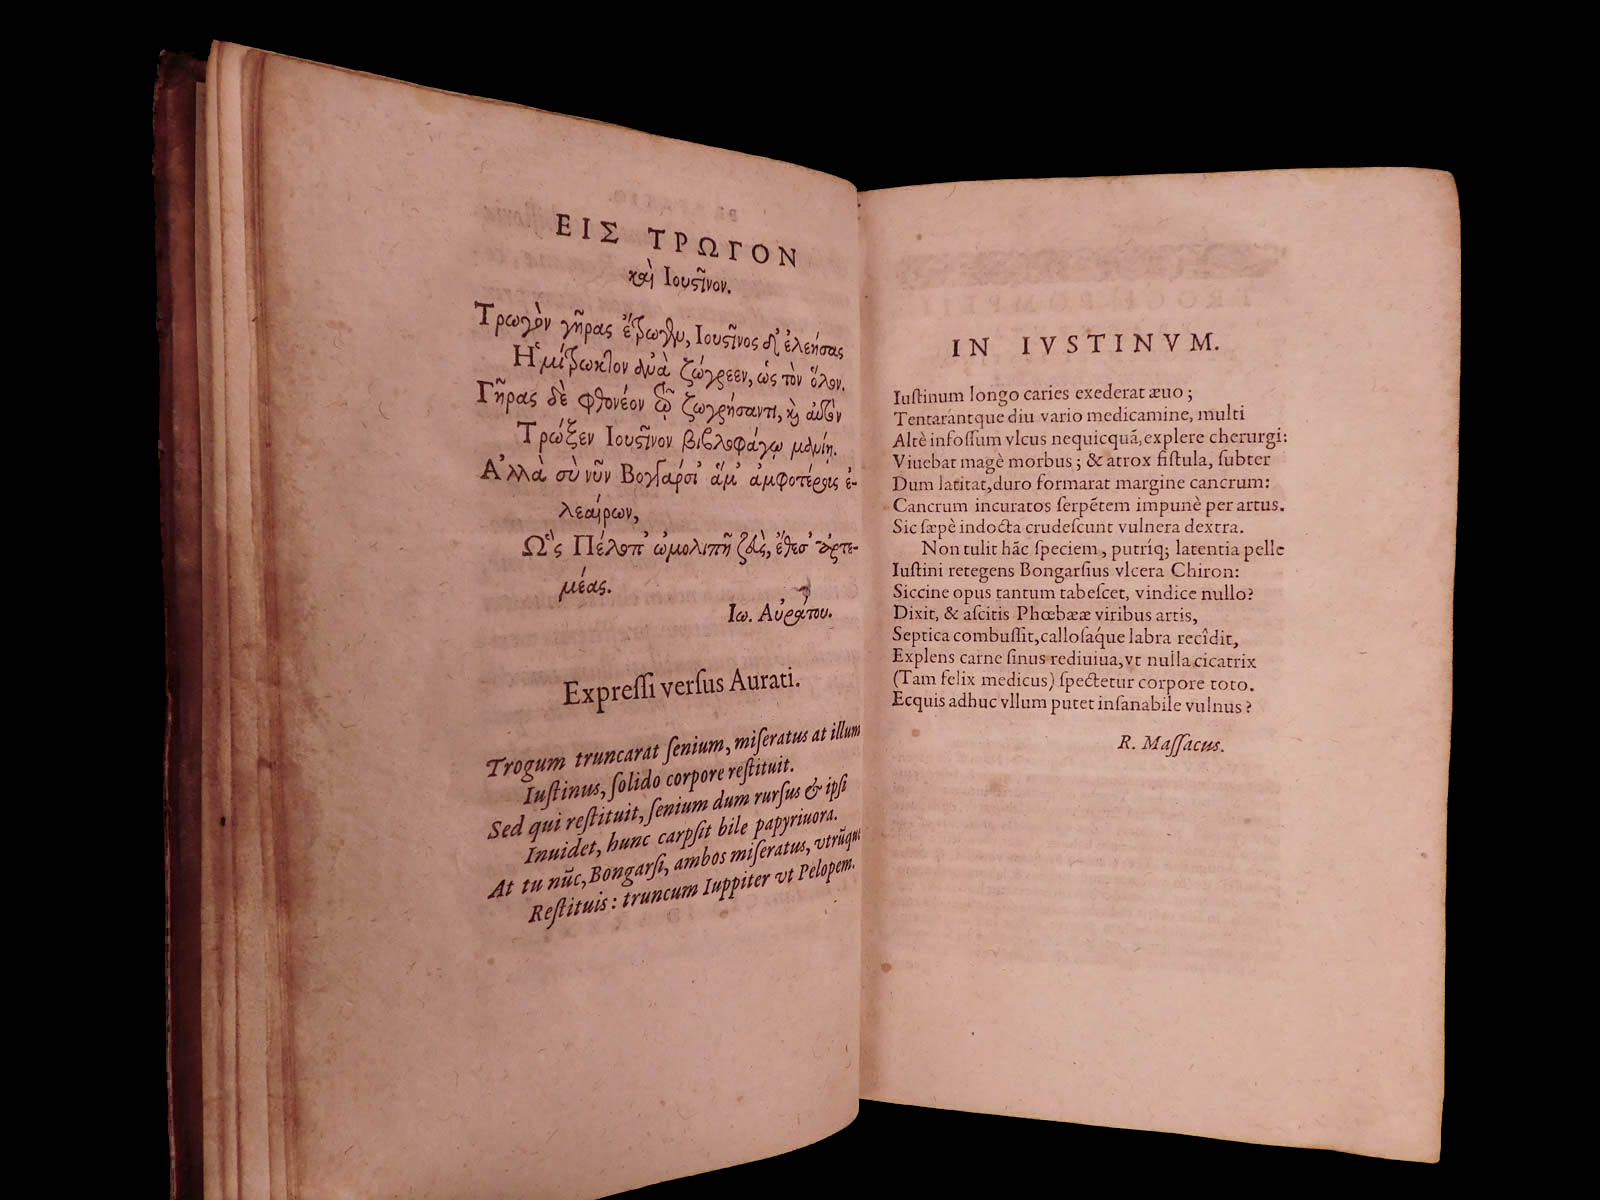 ΕΙΣ ΤΡΩΓΟΝ
καὶ Ιουστῖνον.
Τρωγὸν γῆρας ἔτρωγεν, Ιουστῖνος δ' ἐλεήσας
Ἡμίτρωκτον ζώγρεεν, ὡς τὸν ὅλον.
Γῆρας δὲ φθονέον τῷ ζωγρήσαντι, καὶ αὐτὸν
Τρῶξεν Ιουστῖνον βιβλοφάγῳ μανίῃ.
Ἀλλὰ σὺ νῦν Βογγαρσί ἅμ' ἀμφοτέροις ἐ-
λεαίρων,
Ὡς Πέλοπ' ὠμολιπῆ Ζεὺς, ἔθεσ' ἀρτε-
μέας.
Ιω. Αὐράτου.
Expreſſi verſus Aurati.
Trogum truncarat ſenium, miſeratus at illum
Iuſtinus, ſolido corpore reſtituit.
Sed qui reſtituit, ſenium dum rurſus & ipſi
Inuidet, hunc carpſit bile papyriuora.
At tu nūc, Bongarſi, ambos miſeratus, vtrūque
Reſtituis: truncum Iuppiter vt Pelopem.
IN IVSTINVM.
Iuſtinum longo caries exederat æuo;
Tentarántque diu vario medicamine, multi
Altè infoſſum vlcus nequicquā, explere cherurgi:
Viuebat magè morbus; & atrox fiſtula, ſubter
Dum latitat, duro formarat margine cancrum:
Cancrum incuratos ſerpētem impunè per artus.
Sic ſæpè indocta crudeſcunt vulnera dextra.
Non tulit hāc ſpeciem, putríq; latentia pelle
Iuſtini retegens Bongarſius vlcera Chiron:
Siccine opus tantum tabeſcet, vindice nullo?
Dixit, & aſcitis Phœbææ viribus artis,
Septica combuſſit, calloſáque labra recîdit,
Explens carne ſinus rediuiua, vt nulla cicatrix
(Tam felix medicus) ſpectetur corpore toto.
Ecquis adhuc vllum putet inſanabile vulnus?
R. Maſſacus.